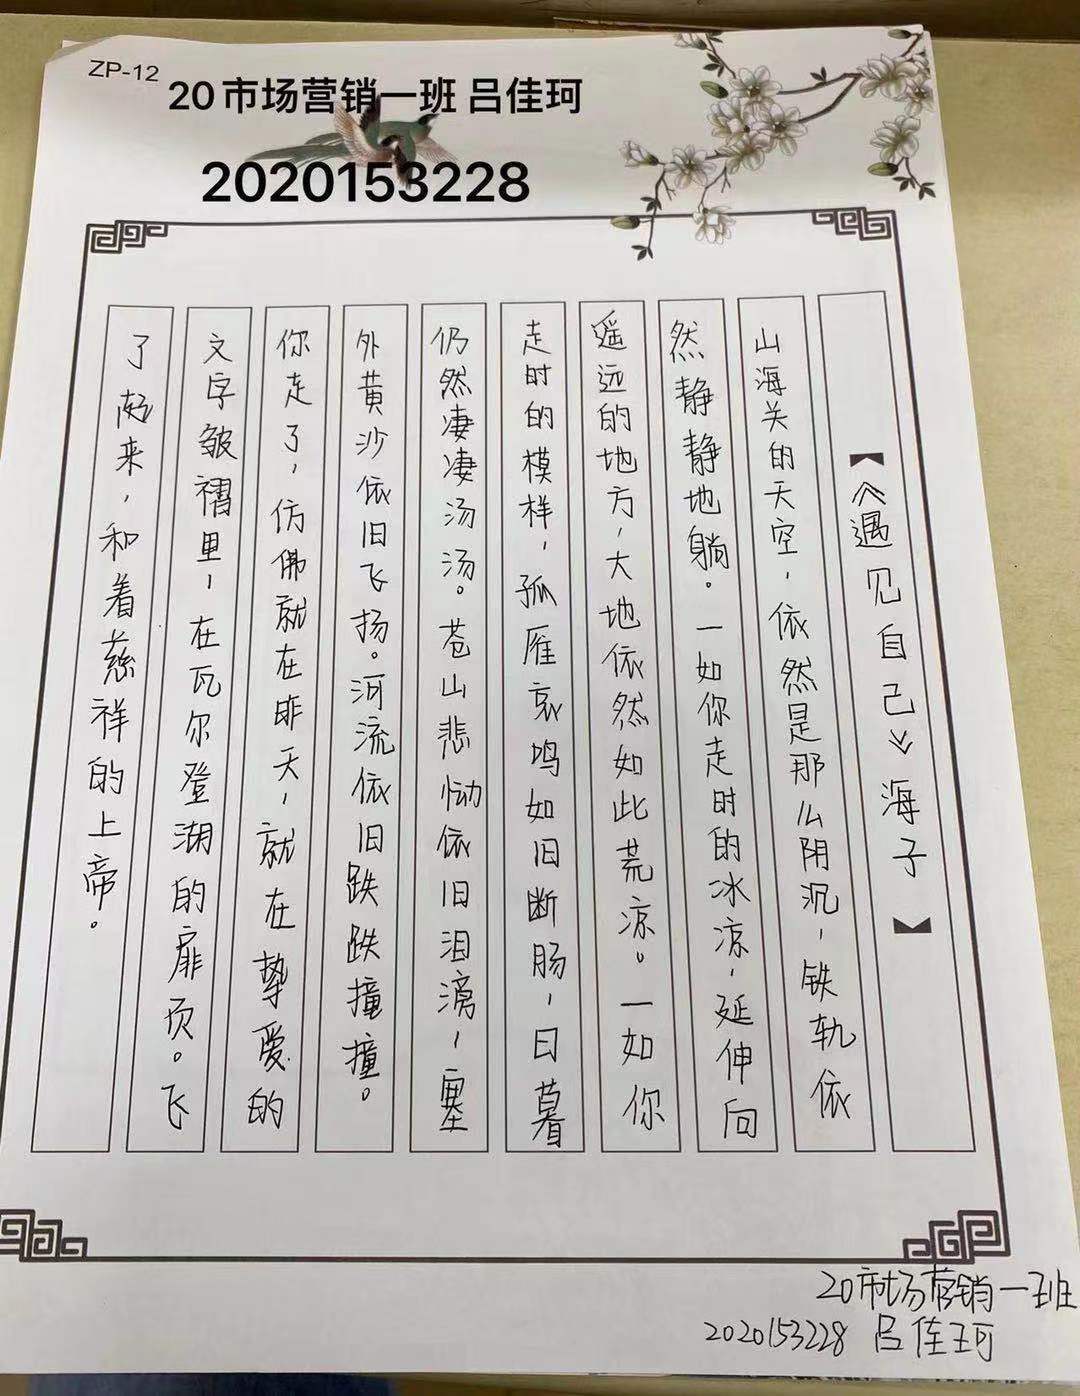 ZP-12
20市场营销一班 吕佳珂
2020153228
【《遇见自己》海子】
山海关的天空，依然是那么阴沉，铁轨依
然静静地躺。一如你走时的冰凉，延伸向
遥远的地方，大地依然如此荒凉。一如你
走时的模样，孤雁哀鸣如旧断肠，日暮
仍然凄凄汤汤。苍山悲恸依旧泪滴，塞
外黄沙依旧飞扬。河流依旧跌跌撞撞。
你走了，仿佛就在昨天，就在挚爱的
文字皱褶里，在瓦尔登湖的扉页。飞
了起来，和着慈祥的上帝。
20市场营销一班
2020153228 吕佳珂